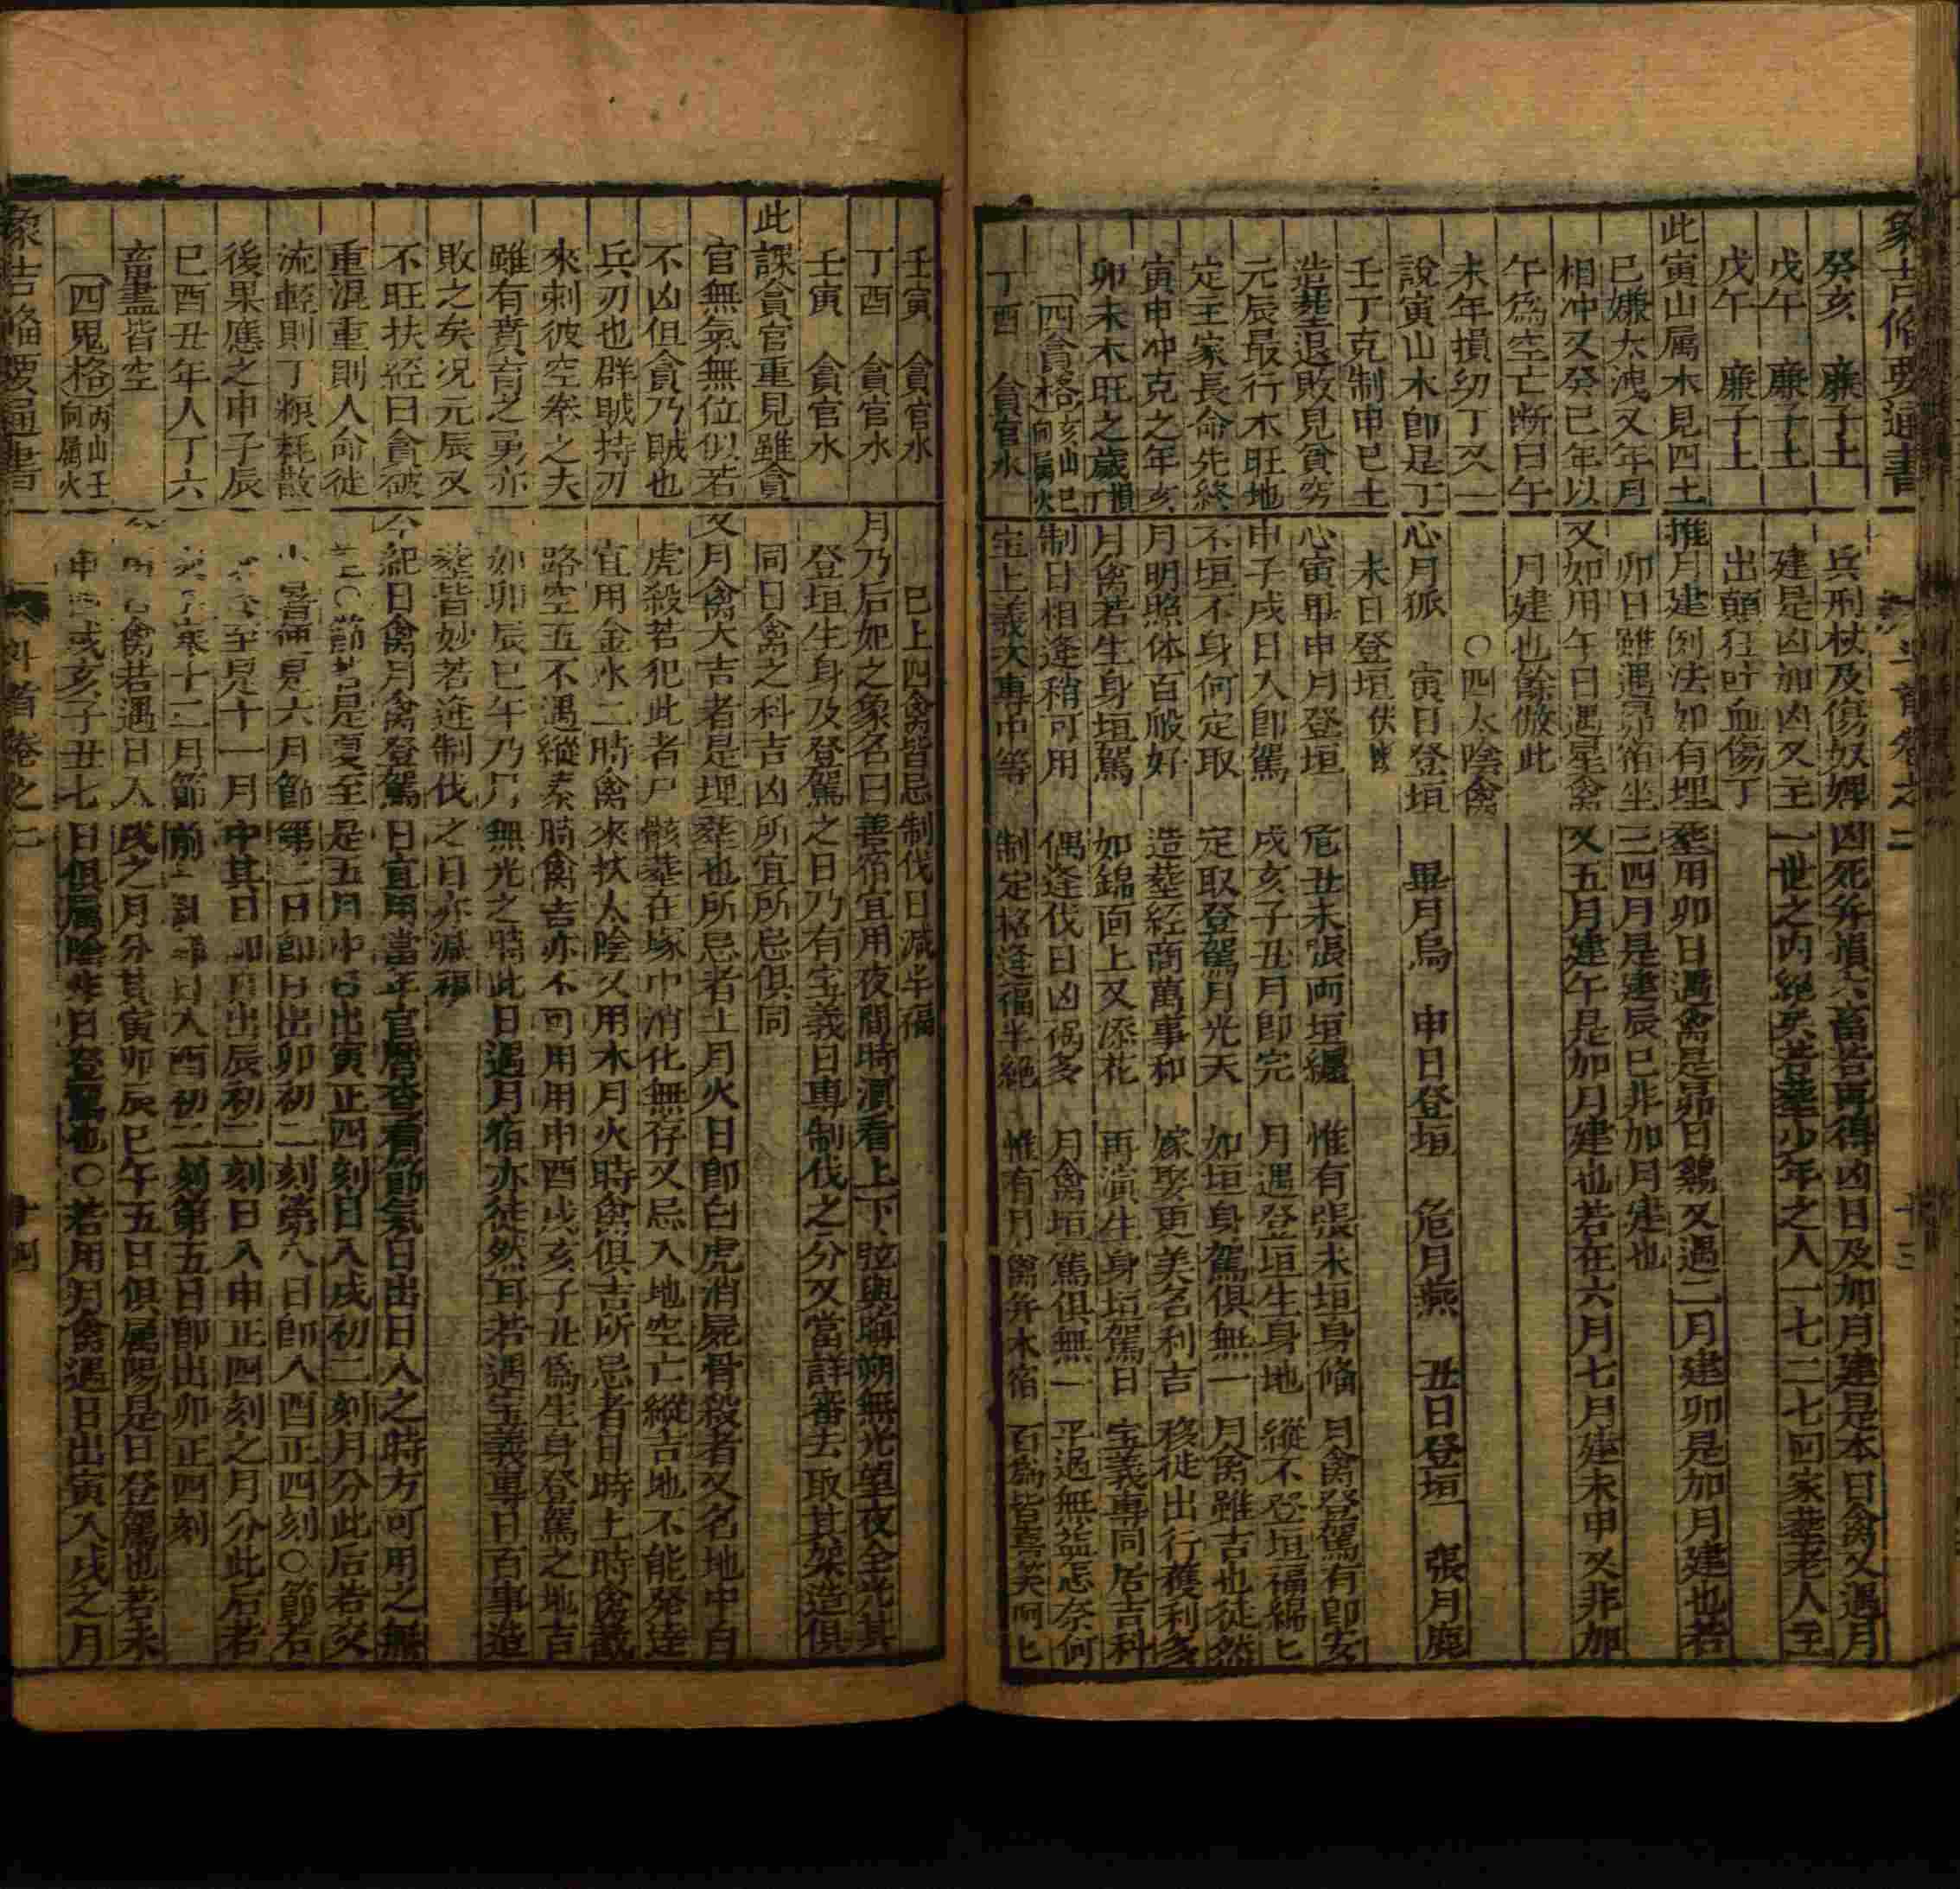 象吉俻要通書
癸亥　廉子土
戊午　廉子土
戊午　廉子土
此寅山属木見四土
巳嫌太洩又年月
相冲又癸巳年以
午為空亡断曰午
未年損幼丁又一
說寅山木即是丁
壬丁克制申巳土
造塟退敗見貧穷
元辰最行木旺地
定主家長命先終
寅申冲克之年亥
卯未木旺之歲損丁
四貪格亥山巳向属火
丁酉　貪官水
兵刑杖及傷奴婢凶死弁損六畜若再得凶日及加月建是本日禽又遇月
建是凶加凶又主一世之内絕矣若塟少年之人一七二七回家塟老人至
出顛狂吐血傷丁
推月建例法如有埋塟用卯日遇禽是昴日鷄又遇二月建卯是加月建也若
卯日雖遇昴宿坐三四月是建辰巳非加月建也
又如用午日遇星禽又五月建午是加月建也若在六月七月建未申又非加
月建也餘倣此
○四太陰禽
心月狐　寅日登垣　畢月烏　申日登垣　危月燕　丑日登垣　張月鹿
未日登垣
心寅畢申月登垣　危丑未張両垣纒　惟有張未垣身俻　月禽登駕有即安
申子戌日入即駕　戌亥子丑月即完　月遇登垣生身地　縱不登垣福綿匕
不垣不身何定取　定取登駕月光天　如垣身駕俱無一　月禽雖吉也徒然
月明照体百般好　造塟経商萬事和　嫁娶更美名利吉　移徙出行獲利多
月禽若生身垣駕　如錦面上又添花　再演生身垣駕日　宝義專同居吉科
制日相逢稍可用　偶逢伐日凶禍多　月禽垣駕俱無一　平過無益怎奈何
宝上義次專中等　制定格逢福半絕　惟有月禽弁木宿　百為皆喜笑呵匕
壬寅　貪官水
丁酉　貪官水
壬寅　貪官水
此課貪官重見雖貪
官無氣無位似若
不凶但貪乃賊也
兵刃也群賊持刃
來刺彼空拳之夫
雖有賁育之勇亦
敗之矣况元辰又
不旺扶経曰貪破
重混重則人命徒
流軽則丁粮耗散
後果應之申子辰
巳酉丑年人丁六
畜蠱皆空
四鬼格丙山壬向属火
巳上四禽皆忌制伐日减半福
月乃后妃之象名曰善宿宜用夜間時演看上下弦與晦朔無光望夜全光其
登垣生身及登駕之日乃有宝義日專制伐之分又當詳審去取其架造俱
同日禽之科吉凶所宜所忌俱同
又月禽大吉者是埋塟也所忌者上月火日即白虎消屍骨殺者又名地中白
虎殺若犯此者尸骸塟在塚中消化無存又忌入地空亡縱吉地不能発達
宜用金水二時禽來扶太陰又用木月火時禽俱吉所忌者日時土時禽截
路空五不遇縱奏時禽吉亦不可用用申酉戌亥子丑為生身登駕之地吉
如卯辰巳午乃尸無光之時此日遇月宿亦徒然耳若遇宝義專日百事造
塟皆妙若逢制伐之日亦减福
今紀日禽月禽登駕日宜用當年官曆查看節氣日出日入之時方可用之無
是夏至是五月中日出寅正四刻日入戌初二刻月分此后若交
小暑是六月節第二日即日出卯初二刻第八日即入酉正四刻○節若
至見十一月中其日即日出辰初二刻日入申正四刻之月分此后若
寒十二月節前日入酉初二刻第五日即出卯正四刻
禽若遇日入戌之月分其寅卯辰巳午五日俱属陽是日登駕也若未
申　戌亥子丑七日俱属陰非日登駕也○若用月禽遇日出寅入戌之月
象吉俻要通書
卷之二
十四